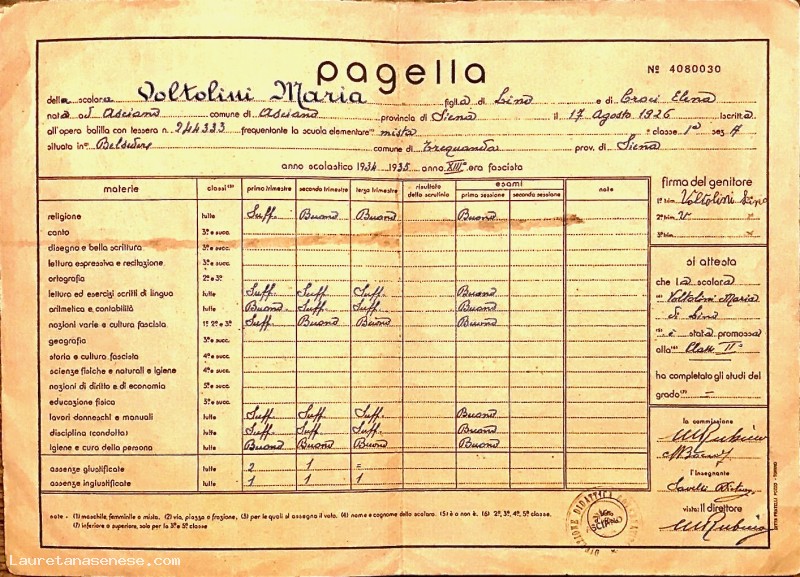 pagella
Nº 4080030
della scolara Voltolini Maria figlia di Lino e di Croci Elena
nata ad Asciano comune di Asciano provincia di Siena il 17 Agosto 1926 Iscritta
all'opera balilla con tessera n. 244333 frequentante la scuola elementare mista classe 1ª sez. A
situata in Belsedere comune di Trequanda prov. di Siena
anno scolastico 1934 1935 anno XIIIº era fascista
materie classi primo trimestre secondo trimestre terzo trimestre risultato dello scrutinio esami prima sessione seconda sessione note
religione tutte Suff. Buono Buono Buono
canto 3ª e succ.
disegno e bella scrittura 3ª e succ.
lettura espressiva e recitazione 3ª e succ.
ortografia 2ª e 3ª
lettura ed esercizi scritti di lingua tutte Suff. Suff. Suff. Buono
aritmetica e contabilità tutte Buono Suff. Suff. Buono
nozioni varie e cultura fascista 1ª 2ª e 3ª Suff. Buono Buono Buono
geografia 3ª e succ.
storia e cultura fascista 4ª e succ.
scienze fisiche e naturali e igiene 4ª e succ.
nozioni di diritto e di economia 5ª e succ.
educazione fisica 3ª e succ.
lavori donneschi e manuali tutte Suff. Suff. Suff. Buono
disciplina (condotta) tutte Suff. Suff. Suff. Buono
igiene e cura della persona tutte Buono Buono Buono Buono
assenze giustificate tutte 2 1 =
assenze ingiustificate tutte 1 1 1
firma del genitore
1º trim. Voltolini Lino
2º trim. V " "
3º trim. "
si attesta
che la scolara
Voltolini Maria
di Lino
è stata promossa
alla Classe IIª
ha completato gli studi del
grado (7) =
la commissione
l'insegnante
visto: Il direttore
note - (1) maschile, femminile o mista. (2) via, piazza o frazione. (3) per le quali si assegna il voto. (4) nome e cognome dello scolaro. (5) è o non è. (6) 2ª, 3ª, 4ª, 5ª classe.
(7) inferiore o superiore, solo per la 3ª e 5ª classe
Lauretanasenese.com